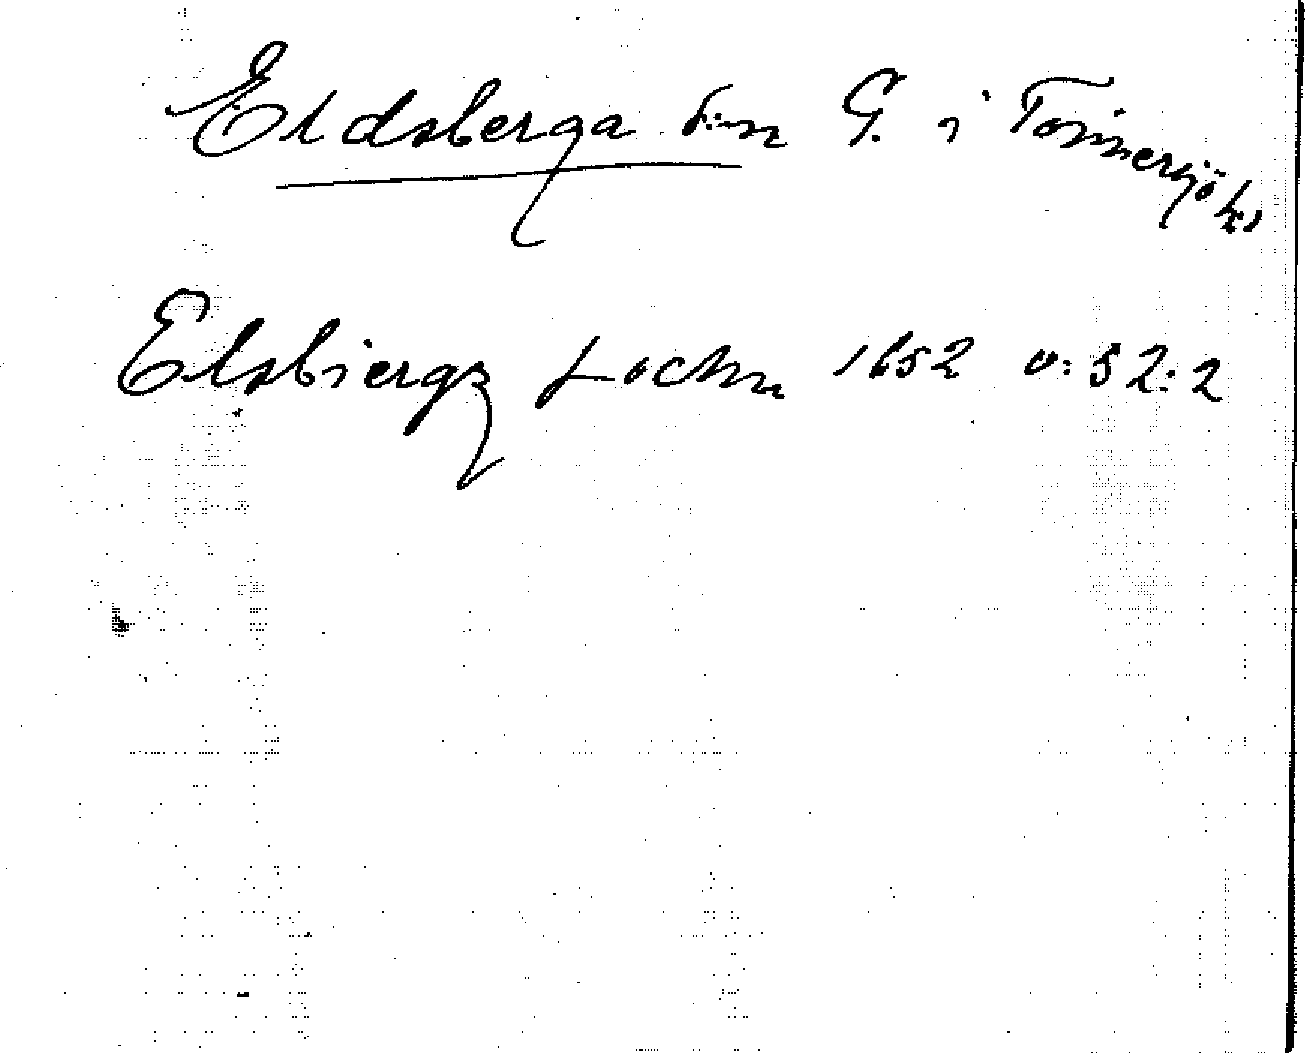 Eldsberga sn G. i Tönnersjö hd
Elsbiergz Sochn 1652 v: 52: 2